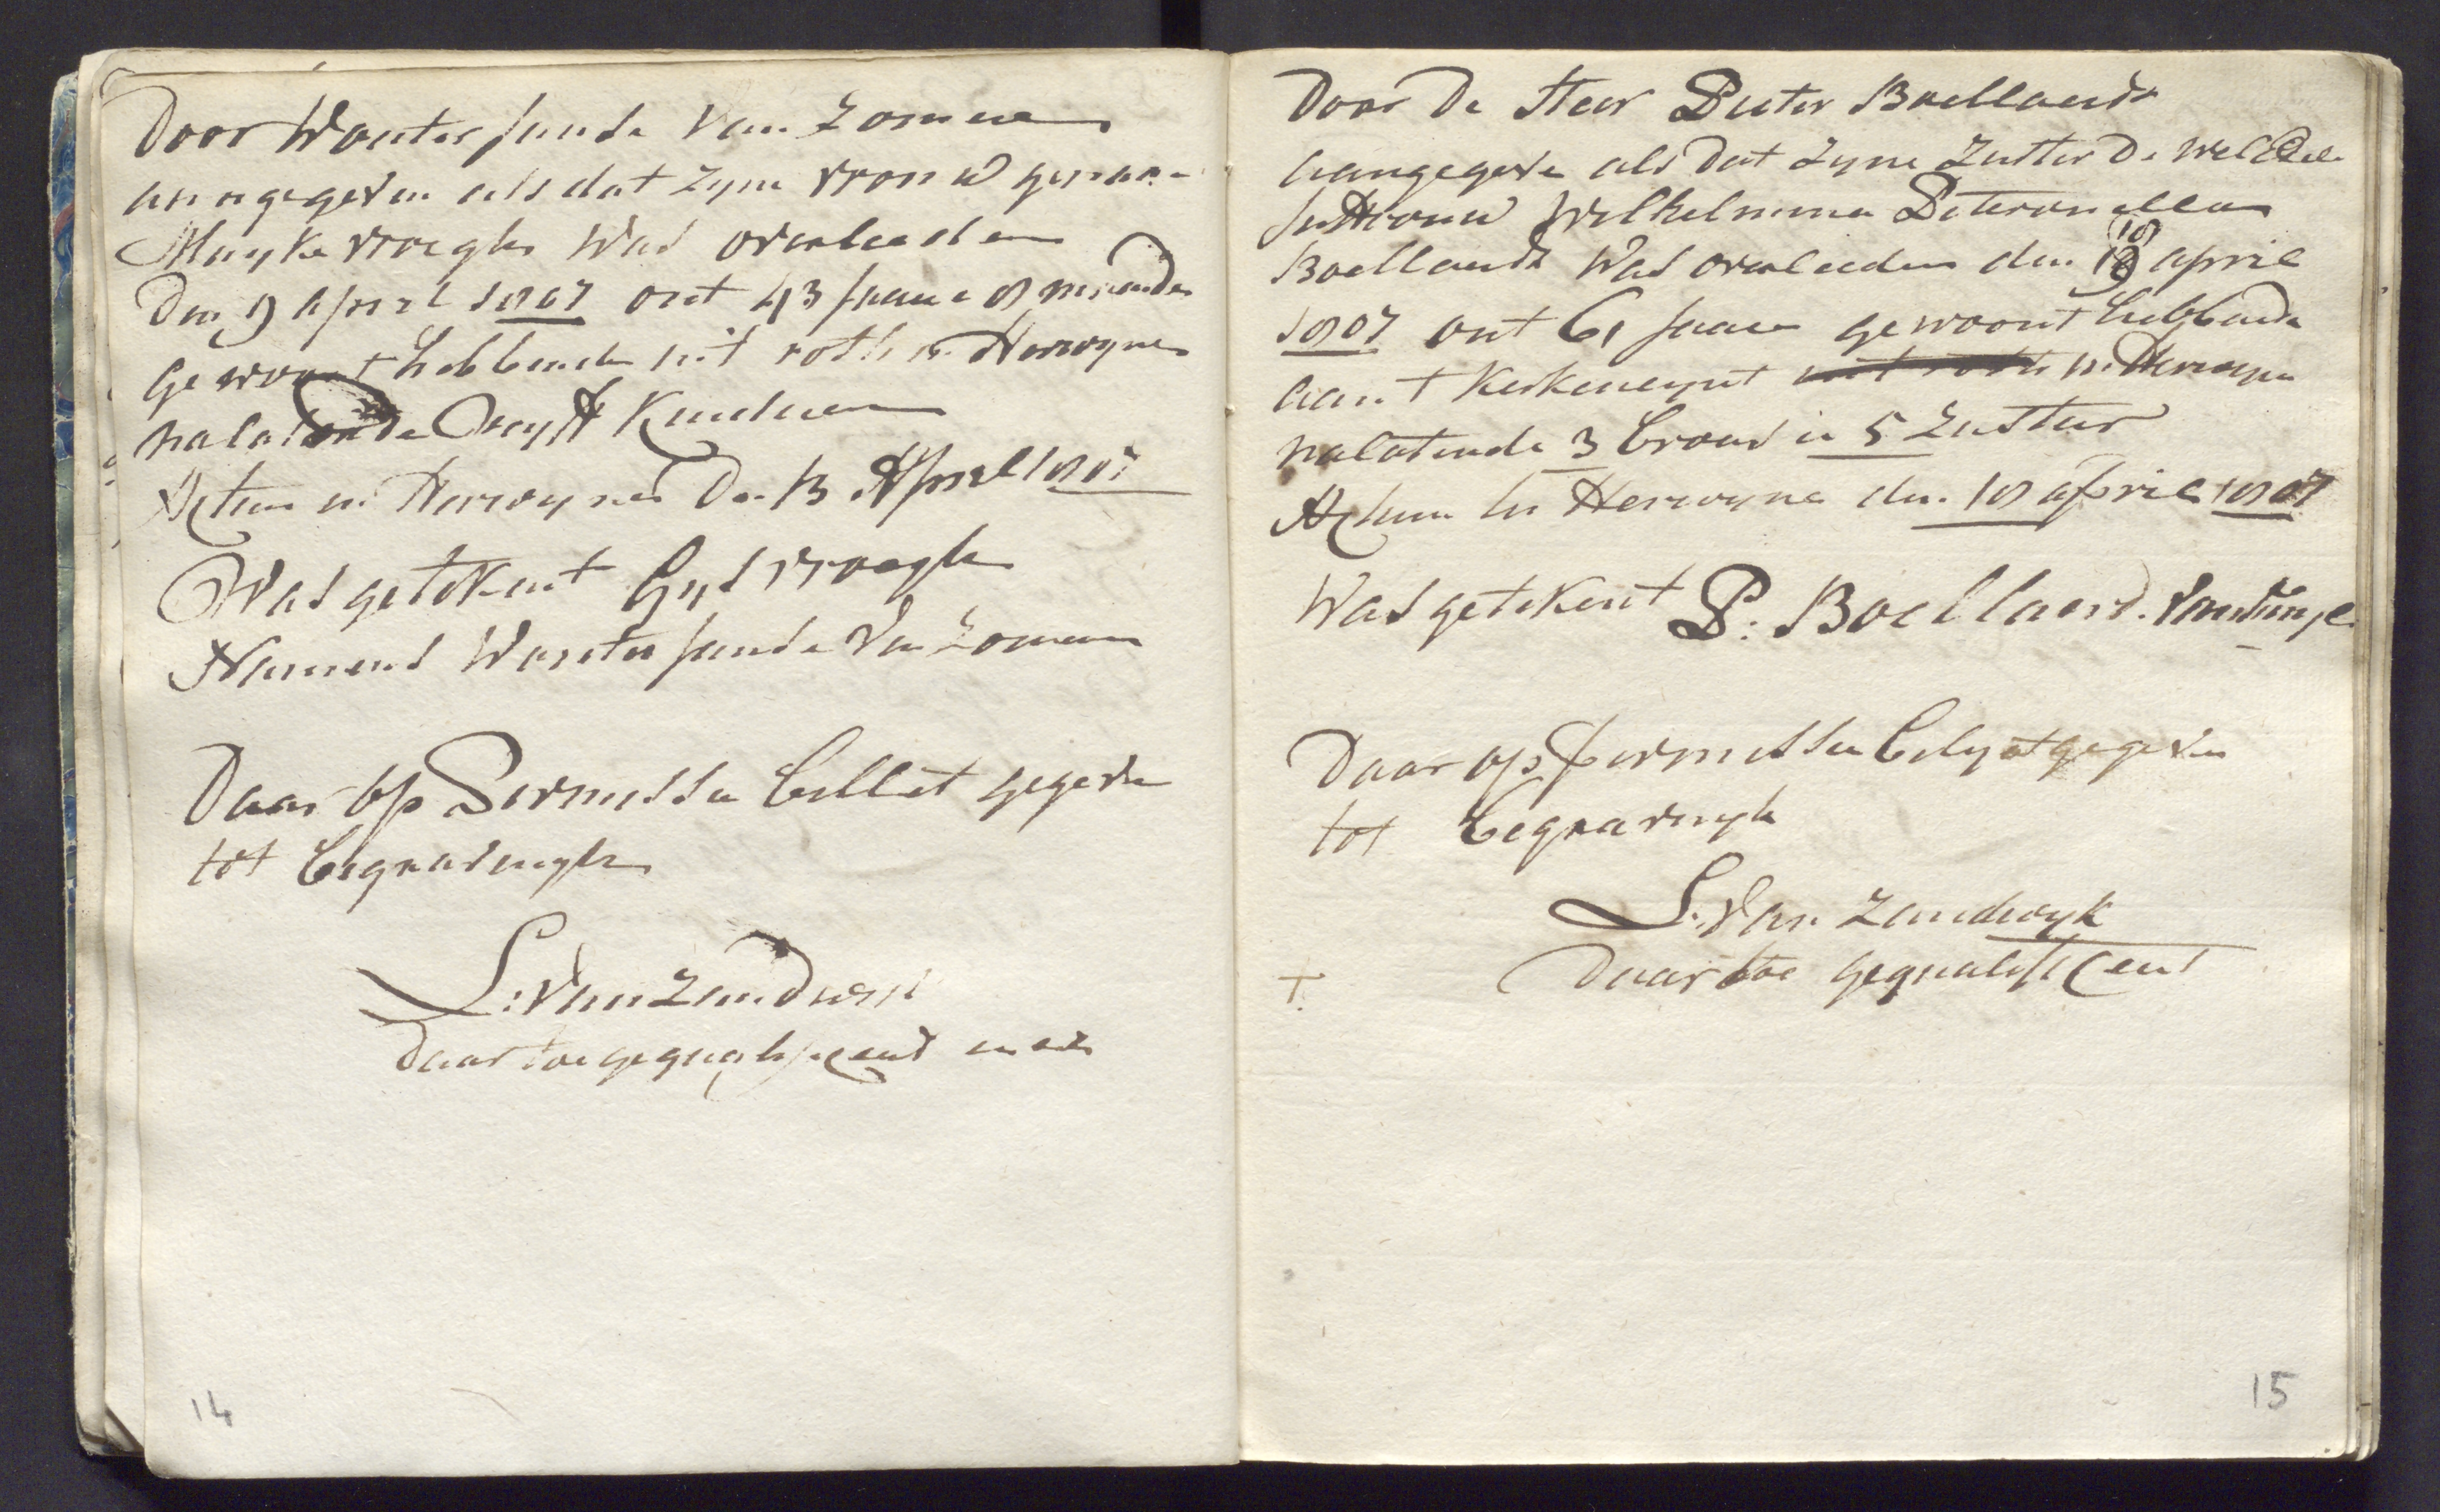 Door Wouter Jansde van Zomeren
aangegeven als dat zyne vrouw genaa-
Mayke vroegh Was overleeden
Den 9 april 1807 out 43 Jaare 8 maande
gewoont hebbende uit roth in Herwyne
nalatende Kinderen
Actum in Herwynen Den 13 April 1807
Was getekent Gys vroegh
Namens Wouter Jansde van Zomeren
Daar op Permissie billet gegeven
tot begravingh
L: van Zandwyk
Daar toe gequalificeert
14
Door De Heer Pieter Boellaard
aangegeve als dat zyne Zuster De WelEdele
Juffrouw Wilhelmina Peteronella
Boellaard Was overleeden den 18 april
1807 out 61 Jaare gewoont hebbende
aan t Kerkeneynt in Herwyne
nalatende 3 broers en 5 Zusters
Actum in Herwyne den 18 april 1807
Was getekent P: Boellaard
Daar op permissie bilyet gegeven
tot begravingh
L. Van Zandwyk
Daar toe gequalificeert
15